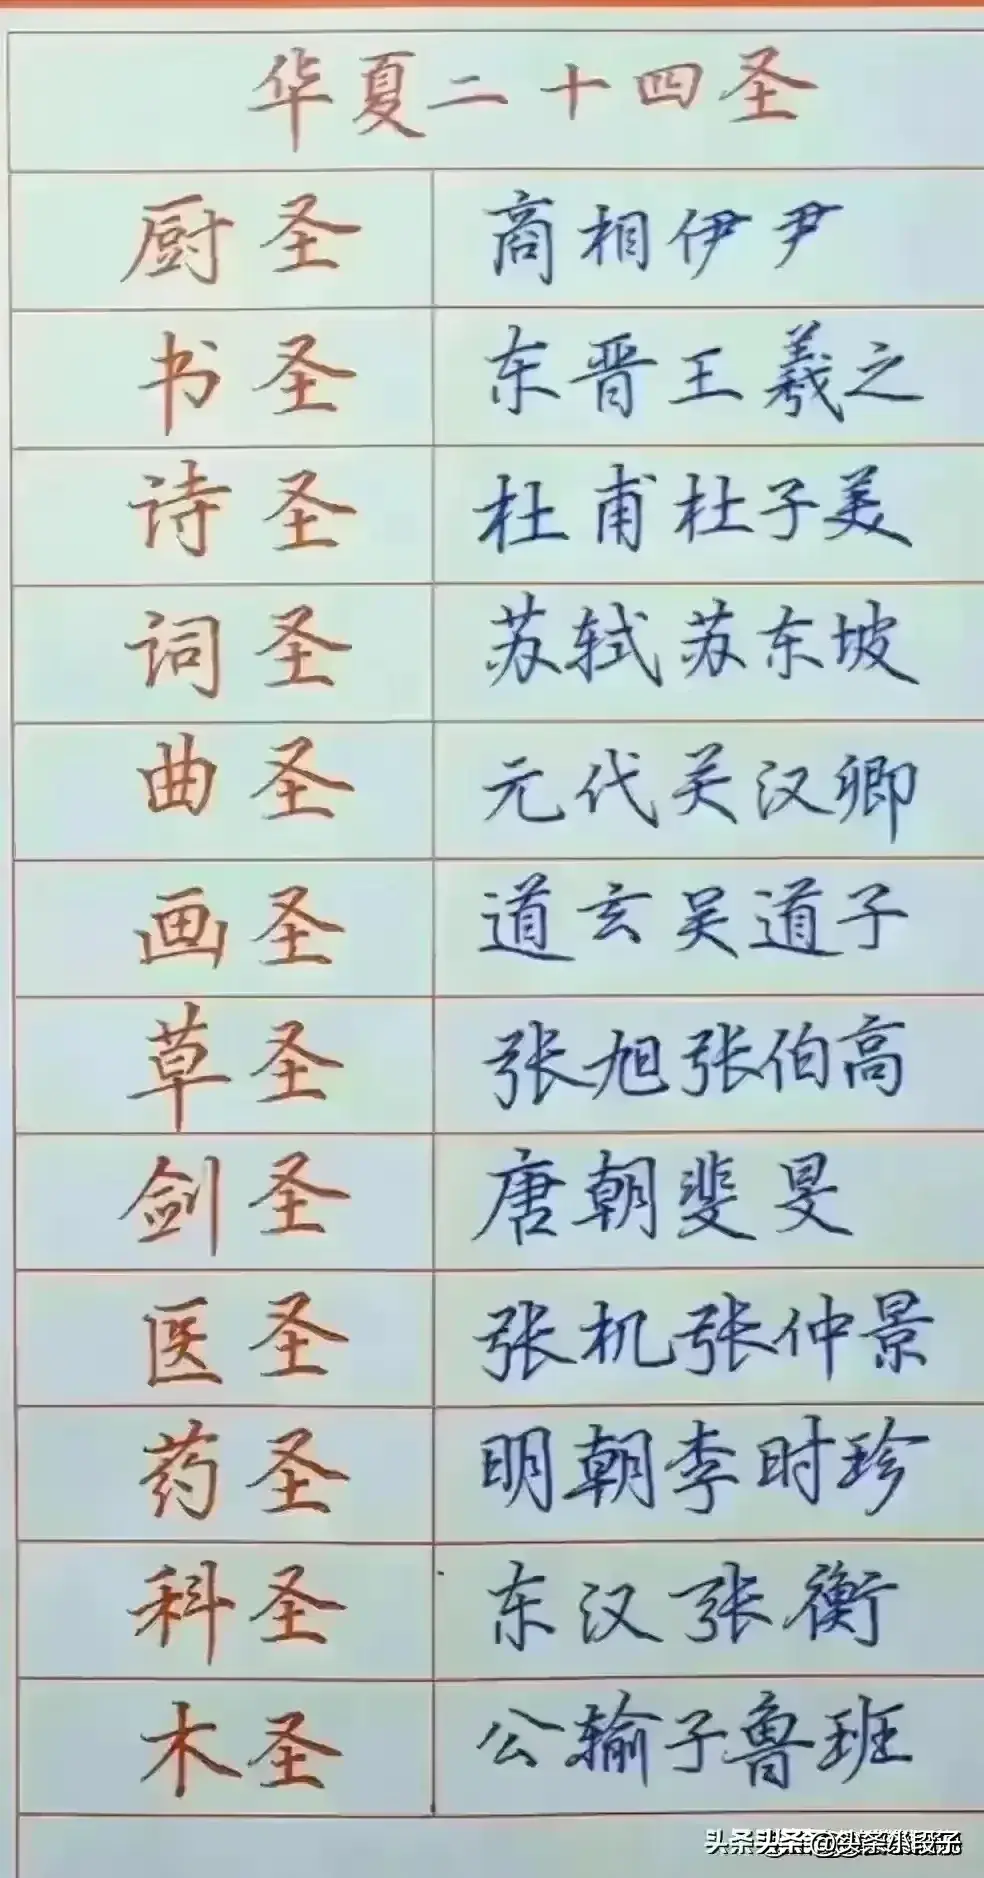 华夏二十四圣
厨圣 商相伊尹
书圣 东晋王羲之
诗圣 杜甫杜子美
词圣 苏轼苏东坡
曲圣 元代关汉卿
画圣 道玄吴道子
草圣 张旭张伯高
剑圣 唐朝斐旻
医圣 张机张仲景
药圣 明朝李时珍
科圣 东汉张衡
木圣 公输子鲁班